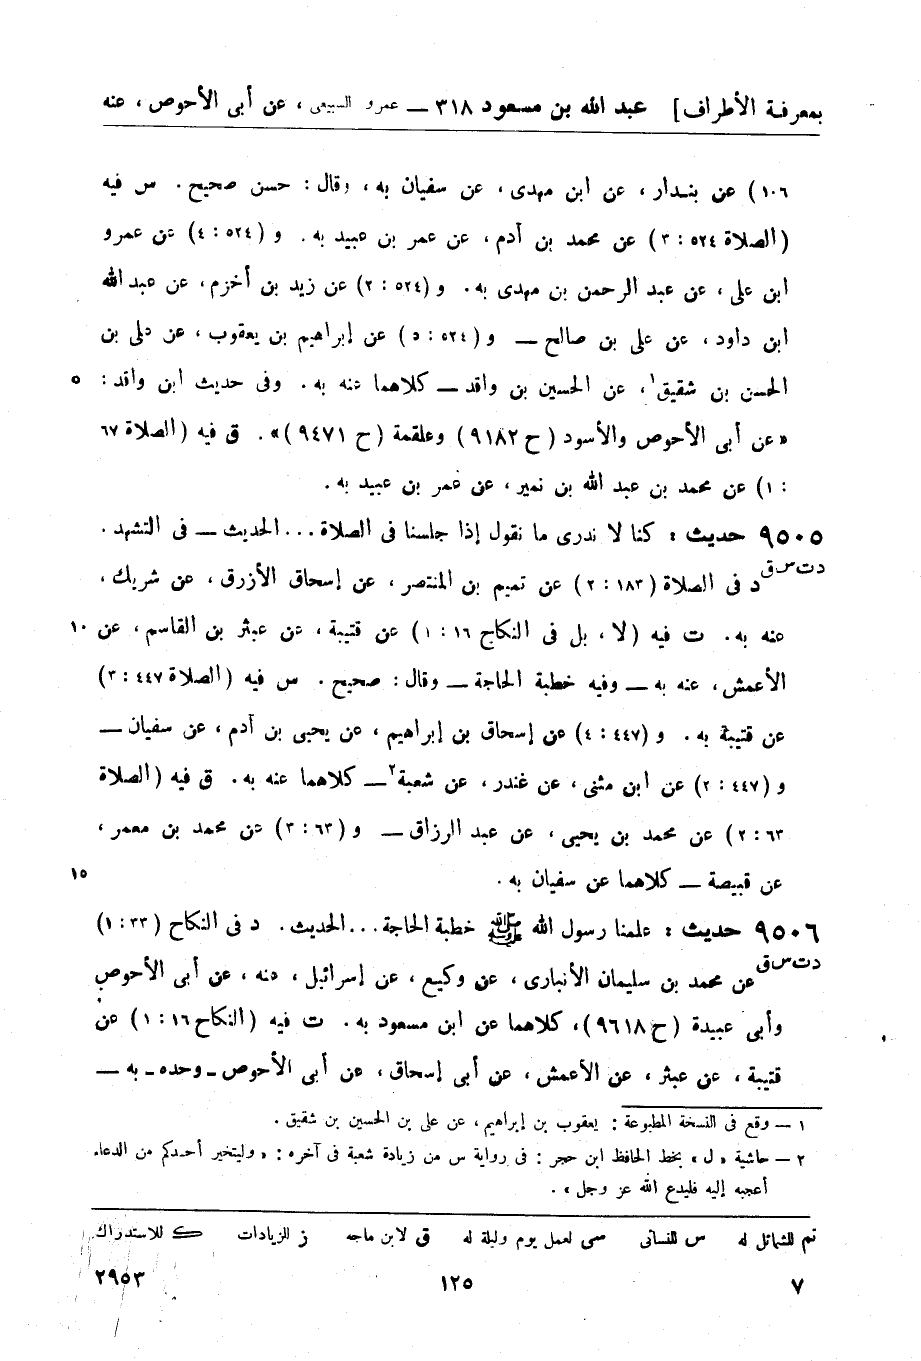 بمعرفة الأطراف] عبد الله بن مسعود ٣١٨ — عمرو السبيعى ، عن أبى الأحوص ، عنه
١٠٦) عن بندار ، عن ابن مهدى ، عن سفيان به ، وقال : حسن صحيح . س فيه
(الصلاة ٥٢٤ : ٣) عن محمد بن آدم ، عن عمر بن عبيد به . و (٥٢٤ : ٤) عن عمرو
ابن على ، عن عبد الرحمن بن مهدى به . و (٥٢٤ : ٢) عن زيد بن أخزم ، عن عبد الله
ابن داود ، عن على بن صالح — و (٥٢٤ : ٥) عن إبراهيم بن يعقوب ، عن على بن
الحسن بن شقيق١ ، عن الحسين بن واقد — كلاهما عنه به . وفى حديث ابن واقد : ٥
«عن أبى الأحوص والأسود (ح ٩١٨٢) وعلقمة (ح ٩٤٧١)» . ق فيه (الصلاة ٦٧
: ١) عن محمد بن عبد الله بن نمير ، عن عمر بن عبيد به .
٩٥٠٥ حديث : كنا لا ندرى ما نقول إذا جلسنا فى الصلاة ... الحديث — فى التشهد .
د ت س ق
د فى الصلاة (١٨٣ : ٢) عن تميم بن المنتصر ، عن إسحاق الأزرق ، عن شريك ،
عنه به . ت فيه (لا ، بل فى النكاح ١٦ : ١) عن قتيبة ، عن عبثر بن القاسم ، عن ١٠
الأعمش ، عنه به — وفيه خطبة الحاجة — وقال : صحيح . س فيه (الصلاة ٤٤٧ : ٣)
عن قتيبة به . و (٤٤٧ : ٤) عن إسحاق بن إبراهيم ، عن يحيى بن آدم ، عن سفيان —
و (٤٤٧ : ٢) عن ابن مثنى ، عن غندر ، عن شعبة٢ — كلاهما عنه به . ق فيه (الصلاة
٦٣ : ٢) عن محمد بن يحيى ، عن عبد الرزاق — و (٦٣ : ٣) عن محمد بن معمر ،
عن قبيصة — كلاهما عن سفيان به . ١٥
٩٥٠٦ حديث : علمنا رسول الله ﷺ خطبة الحاجة ... الحديث . د فى النكاح (٣٣ : ١)
د ت س ق
عن محمد بن سليمان الأنبارى ، عن وكيع ، عن إسرائيل ، عنه ، عن أبى الأحوص
وأبى عبيدة (ح ٩٦١٨) ، كلاهما عن ابن مسعود به . ت فيه (النكاح ١٦ : ١) عن
قتيبة ، عن عبثر ، عن الأعمش ، عن أبى إسحاق ، عن أبى الأحوص - وحده - به —
١ — وقع فى النسخة المطبوعة : يعقوب بن إبراهيم ، عن على بن الحسين بن شقيق .
٢ — حاشية «ل» بخط الحافظ ابن حجر : فى رواية س من زيادة شعبة فى آخره : «وليتخير أحدكم من الدعاء
أعجبه إليه فليدع الله عز وجل» .
تم للشمائل له س للنسائى سى لعمل يوم وليلة له ق لابن ماجه ز للزيادات ك للاستدراك
٧ ١٢٥ ٢٩٥٣